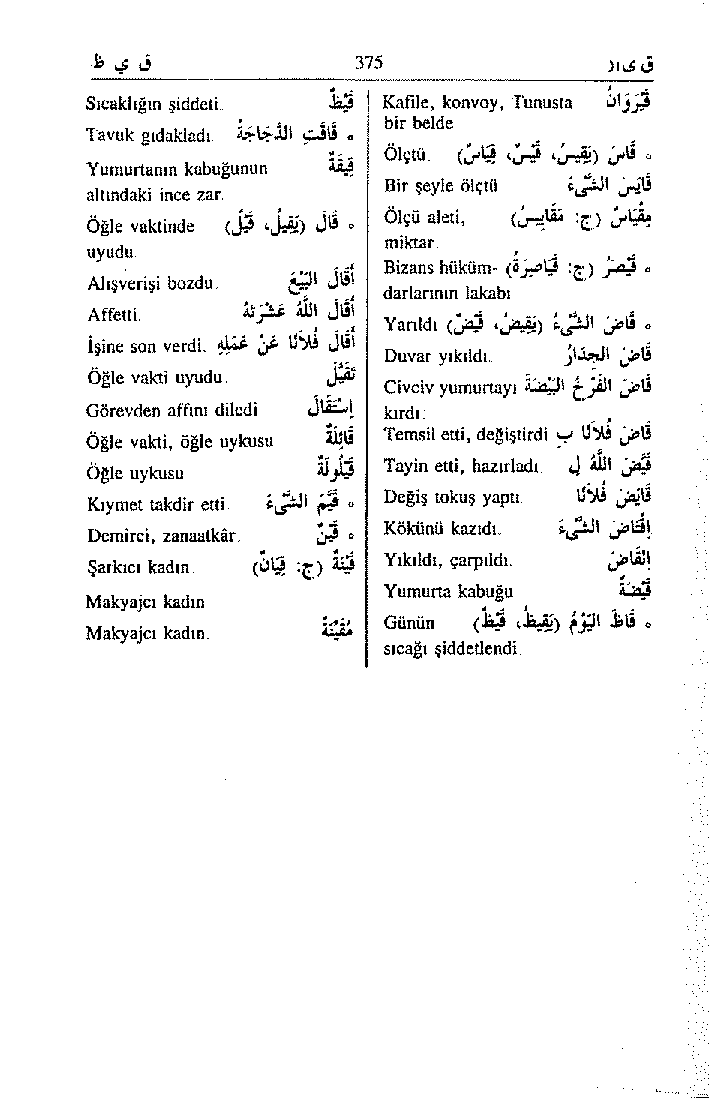 ق ي ظ 375 ق ي ا ر
قَيْرَوَانٌ Kafile, konvoy, Tunusta
bir belde
• قَاسَ (يَقِيسُ، قَيْسٌ، قِيَاسٌ) Ölçtü.
قَايَسَ الشَّيْءَ Bir şeyle ölçtü
مِقْيَاسٌ (ج: مَقَايِيسُ) Ölçü aleti,
miktar.
• قَيْصَرُ (ج: قَيَاصِرَةٌ) Bizans hüküm-
darlarının lakabı
• قَاضَ الشَّيْءُ (يَقِيضُ، قَيْضٌ) Yarıldı
قَاضَ الْجِدَارُ Duvar yıkıldı.
قَاضَ الْفَرْخُ الْبَيْضَةَ Civciv yumurtayı
kırdı.
قَاضَ فُلَانًا بِ Temsil etti, değiştirdi
قَيَّضَ اللَّهُ لِ Tayin etti, hazırladı.
قَايَضَ فُلَانًا Değiş tokuş yaptı.
اِقْتَاضَ الشَّيْءَ Kökünü kazıdı.
اِنْقَاضَ Yıkıldı, çarpıldı.
قَيْضَةٌ Yumurta kabuğu
• قَاظَ الْيَوْمُ (يَقِيظُ، قَيْظٌ) Günün
sıcağı şiddetlendi.
قَيْظٌ Sıcaklığın şiddeti.
• قَاقَتِ الدَّجَاجَةُ Tavuk gıdakladı.
قِيقَةٌ Yumurtanın kabuğunun
altındaki ince zar.
• قَالَ (يَقِيلُ، قَيْلٌ) Öğle vaktinde
uyudu.
أَقَالَ الْبَيْعَ Alışverişi bozdu.
أَقَالَ اللَّهُ عَثْرَتَهُ Affetti.
أَقَالَ فُلَانًا عَنْ عَمَلِهِ İşine son verdi.
تَقَيَّلَ Öğle vakti uyudu.
اِسْتَقَالَ Görevden affını diledi
قَائِلَةٌ Öğle vakti, öğle uykusu
قَيْلُولَةٌ Öğle uykusu
• قَيَّمَ الشَّيْءَ Kıymet takdir etti.
• قَيْنٌ Demirci, zanaatkâr.
قَيْنَةٌ (ج: قِيَانٌ) Şarkıcı kadın.
Makyajcı kadın
مُقَيِّنَةٌ Makyajcı kadın.